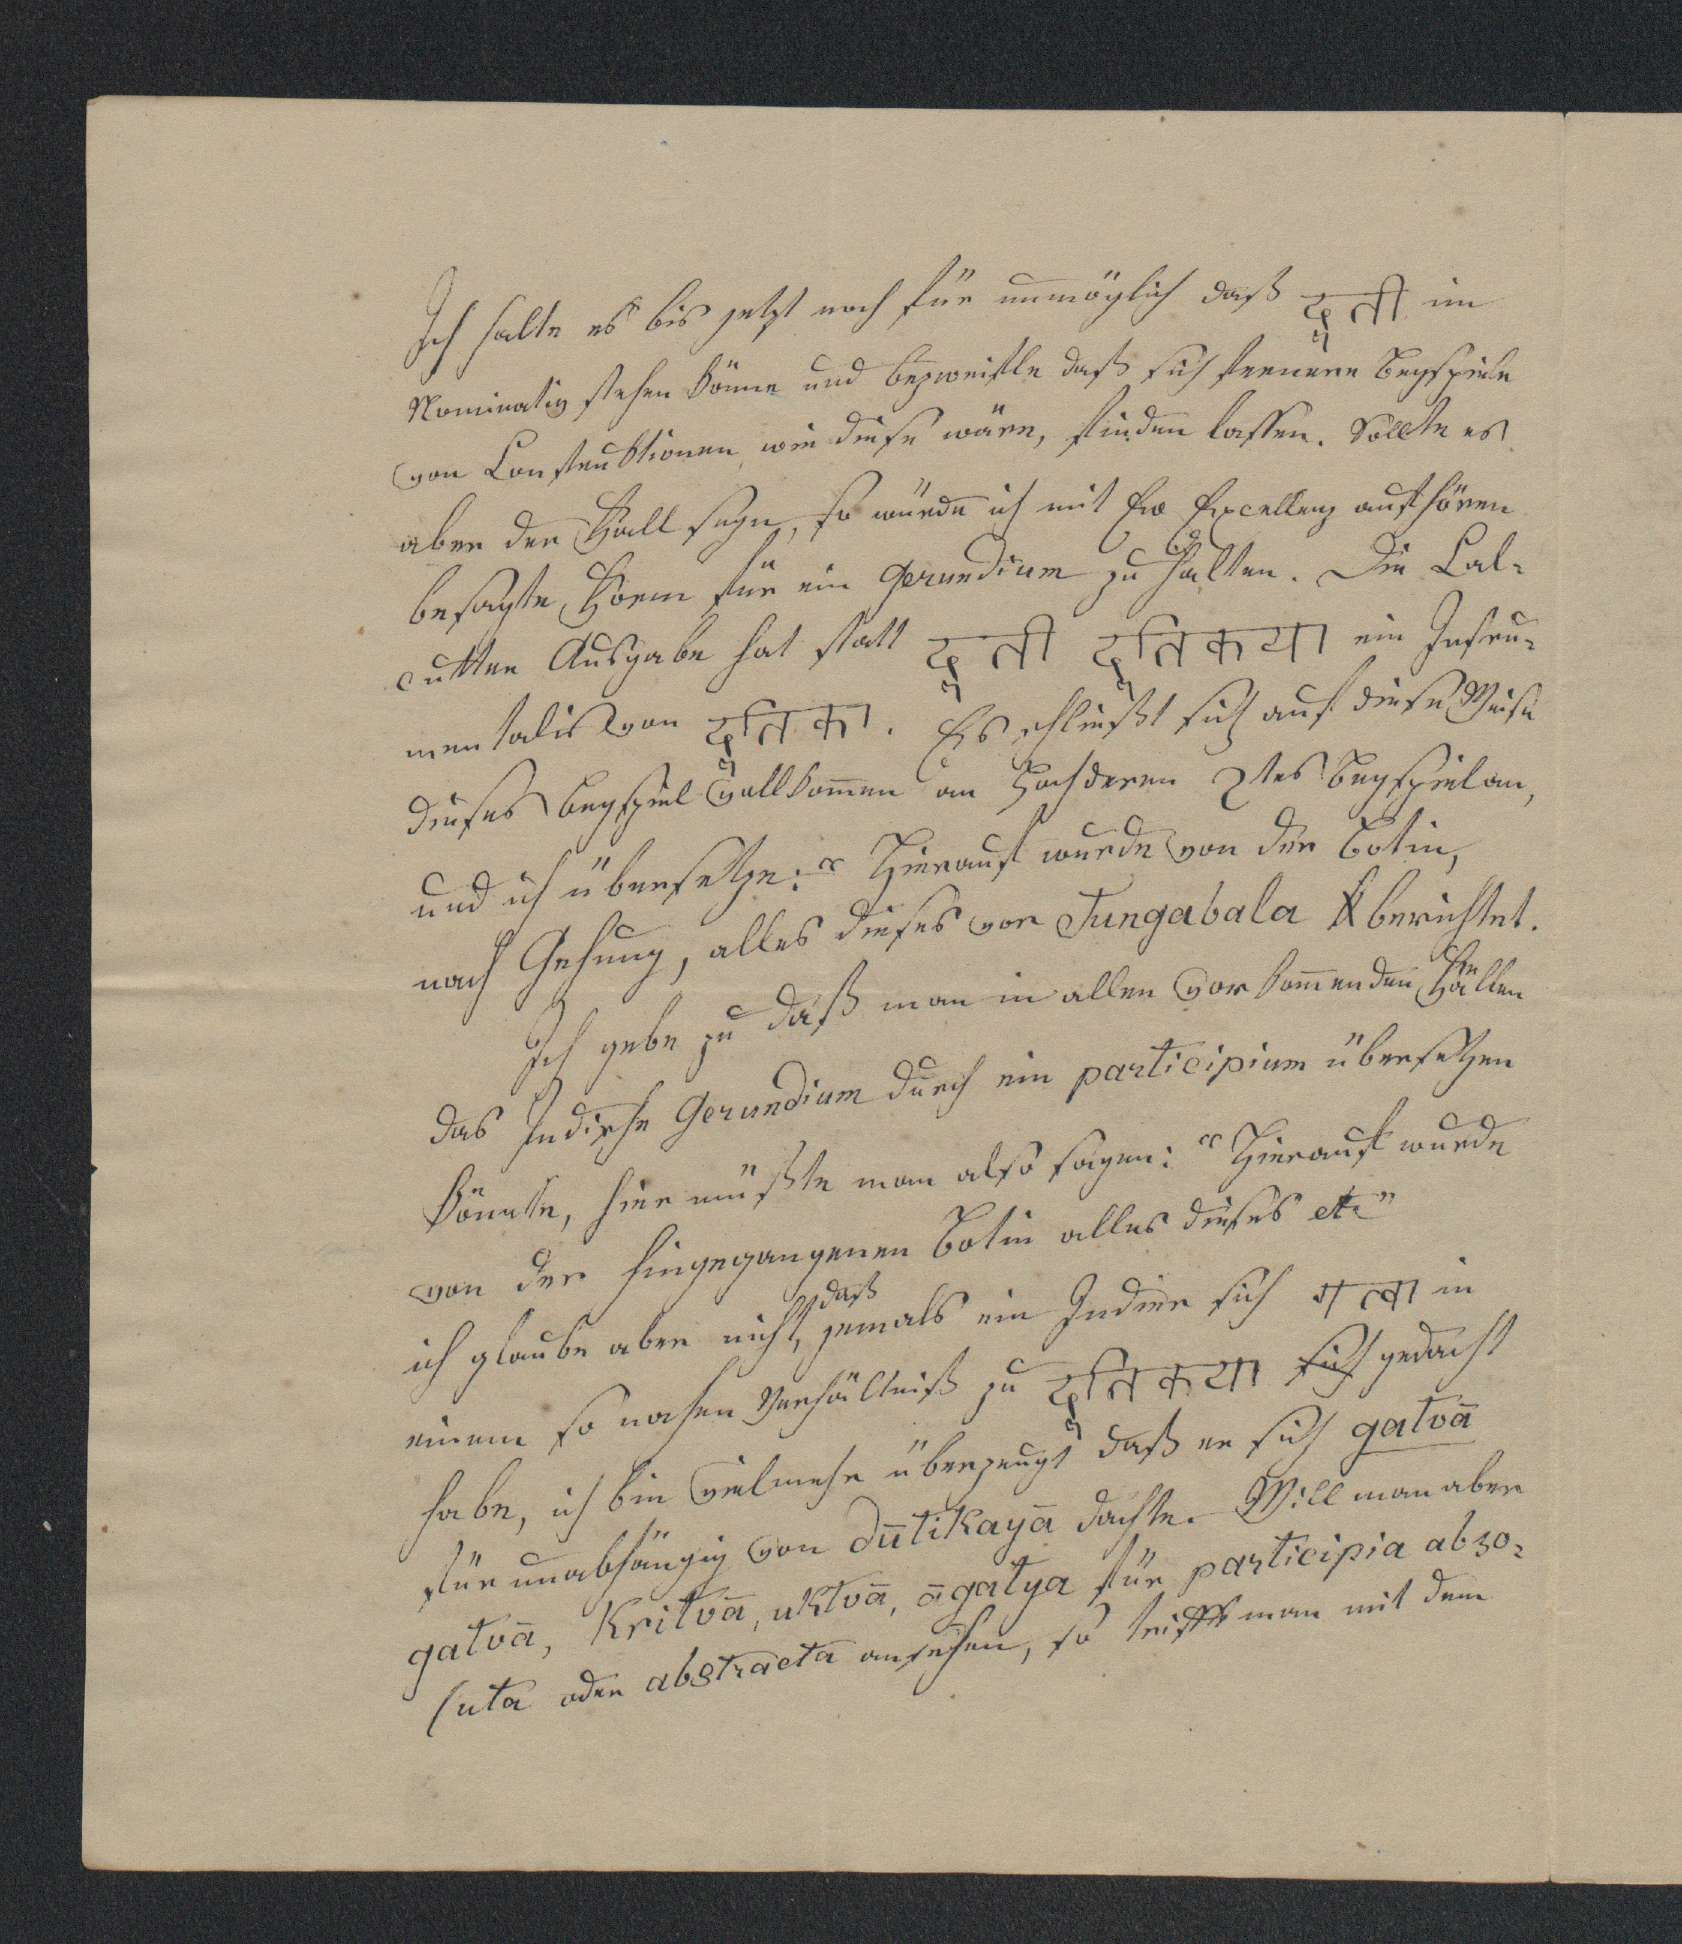 Ich halte es bis jetzt noch für unmöglich daß दूती im
Nominativ stehen könne und bezweifle daß sich fernere Beyspiele
von Constructionen, wie diese wäre, finden lassen. Sollte es
aber der Fall seyn, so würde ich mit Ew Excellenz aufhören
besagte Form für ein Gerundium zu halten. Die Cal-
cutter Ausgabe hat statt दूती दूतिकया ein Instru-
mentalis von दूतिका. Es schließt sich auf diese Weise
dieses Beyspiel vollkommen an Hochderen 2tes Beyspiel an,
und ich übersetze: “Hierauf wurde von der Botin,
nach Gehung, alles dieses vor Tungabala berichtet.
Ich gebe zu daß man in allen vorkommenden Fällen
das Indische Gerundium durch ein participium übersetzen
könnte, hier müßte man also sagen: “Hierauf wurde
von der hingegangenen Botin alles dieses etc”
ich glaube aber nicht, daß jemals ein Indier sich गत्वा in
einem so nahen Verhältniß zu दूतिकया sich gedacht
habe, ich bin vielmehr überzeugt daß er sich gatvā
für unabhängig von dūtikayā dachte. Will man aber
gatvā, kritvā, uktvā, āgatya für participia abso-
luta oder abstracta ansehen, so trifft man mit dem